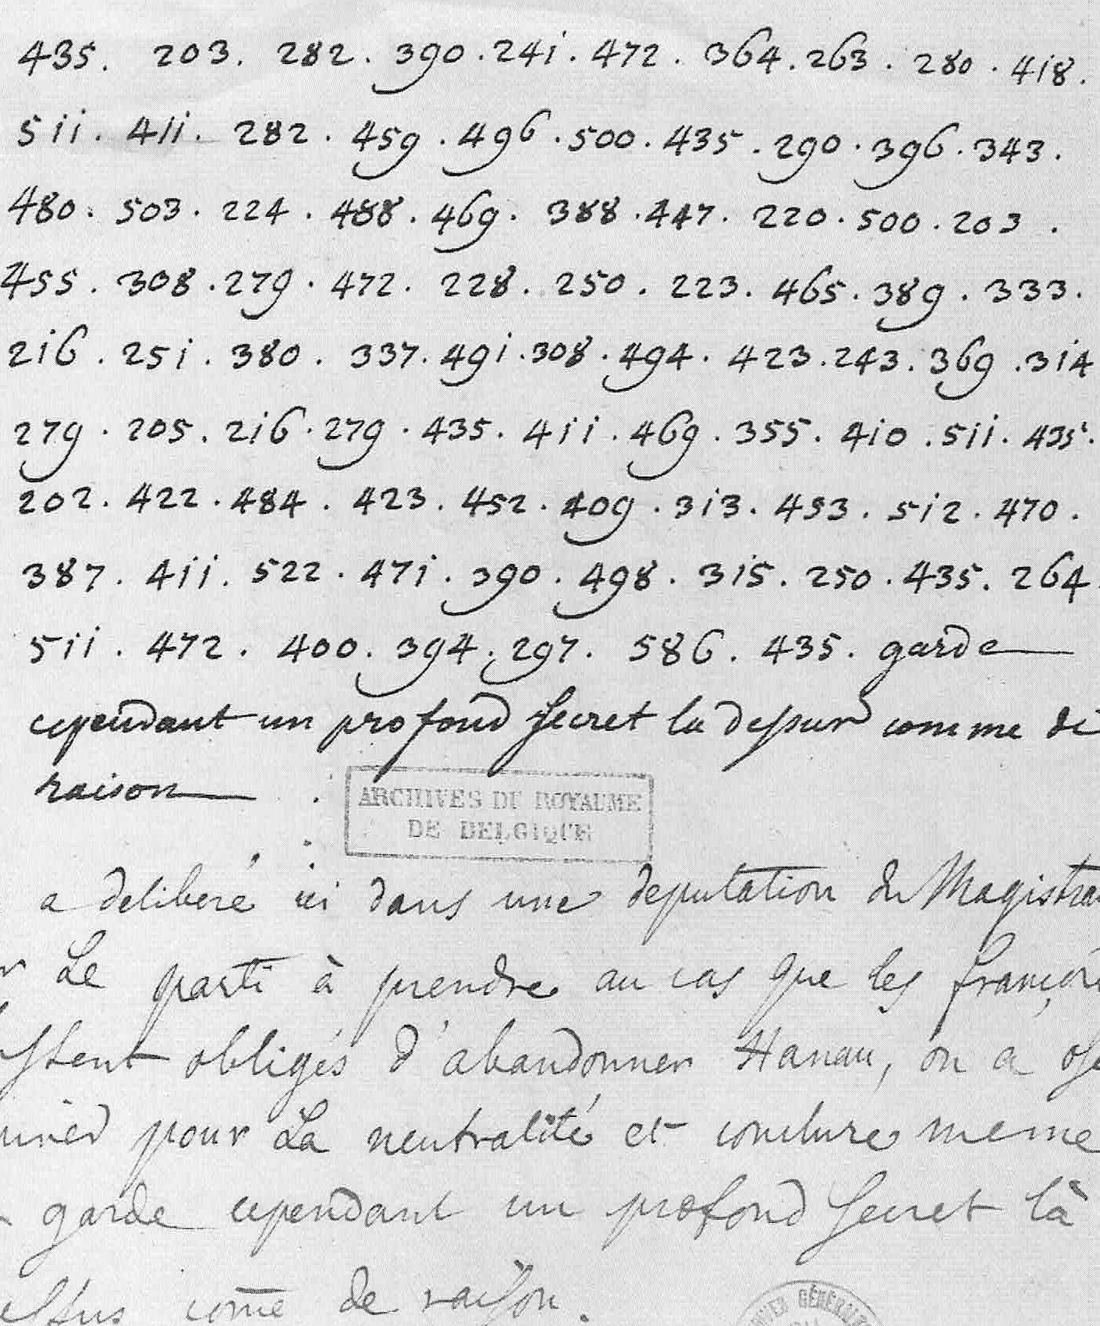 435. 203. 282. 390. 241. 472. 364. 263. 280. 418.
511. 411. 282. 459. 496. 500. 435. 290. 396. 343.
480. 503. 224. 488. 469. 388. 447. 220. 500. 203.
455. 308. 279. 472. 228. 250. 223. 465. 389. 333.
216. 251. 380. 337. 491. 308. 494. 423. 243. 369. 314
279. 205. 216. 279. 435. 411. 469. 355. 410. 511. 435.
202. 422. 484. 423. 452. 409. 313. 453. 512. 470.
387. 411. 522. 471. 390. 498. 315. 250. 435. 264
511. 472. 400. 394. 297. 586. 435. garde
cependant un profond secret la dessus comme de
raison
ARCHIVES DU ROYAUME
DE BELGIQUE
a deliberé ici dans une deputation du Magistra
Le parti à prendre au cas que les françoi
ssent obligés d'abandonner Hanau, on a
pour La neutralité et conclure meme
garde cependant un profond secret là
essus come de raison.